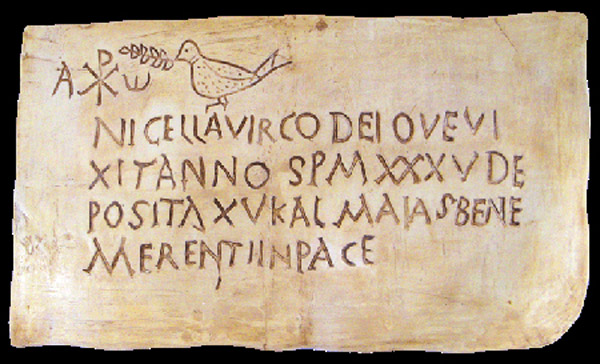 Α ☧ ω
NIGELLAVIRGO DEI QVEVI
XITANNO SPM XXXV DE
POSITA XV KAL MAIAS BENE
MERENTI IN PACE